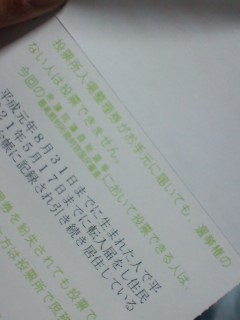 投票所入場整理券がお手元に届いても、選挙権の
ない人は投票できません。
今回の
において投票できる人は、
平成元年８月３１日までに生まれた人で平
２１年５月１７日までに転入届をし住民
台帳に記録され引き続き居住している
券を紛失されても投票で
方は投票所で